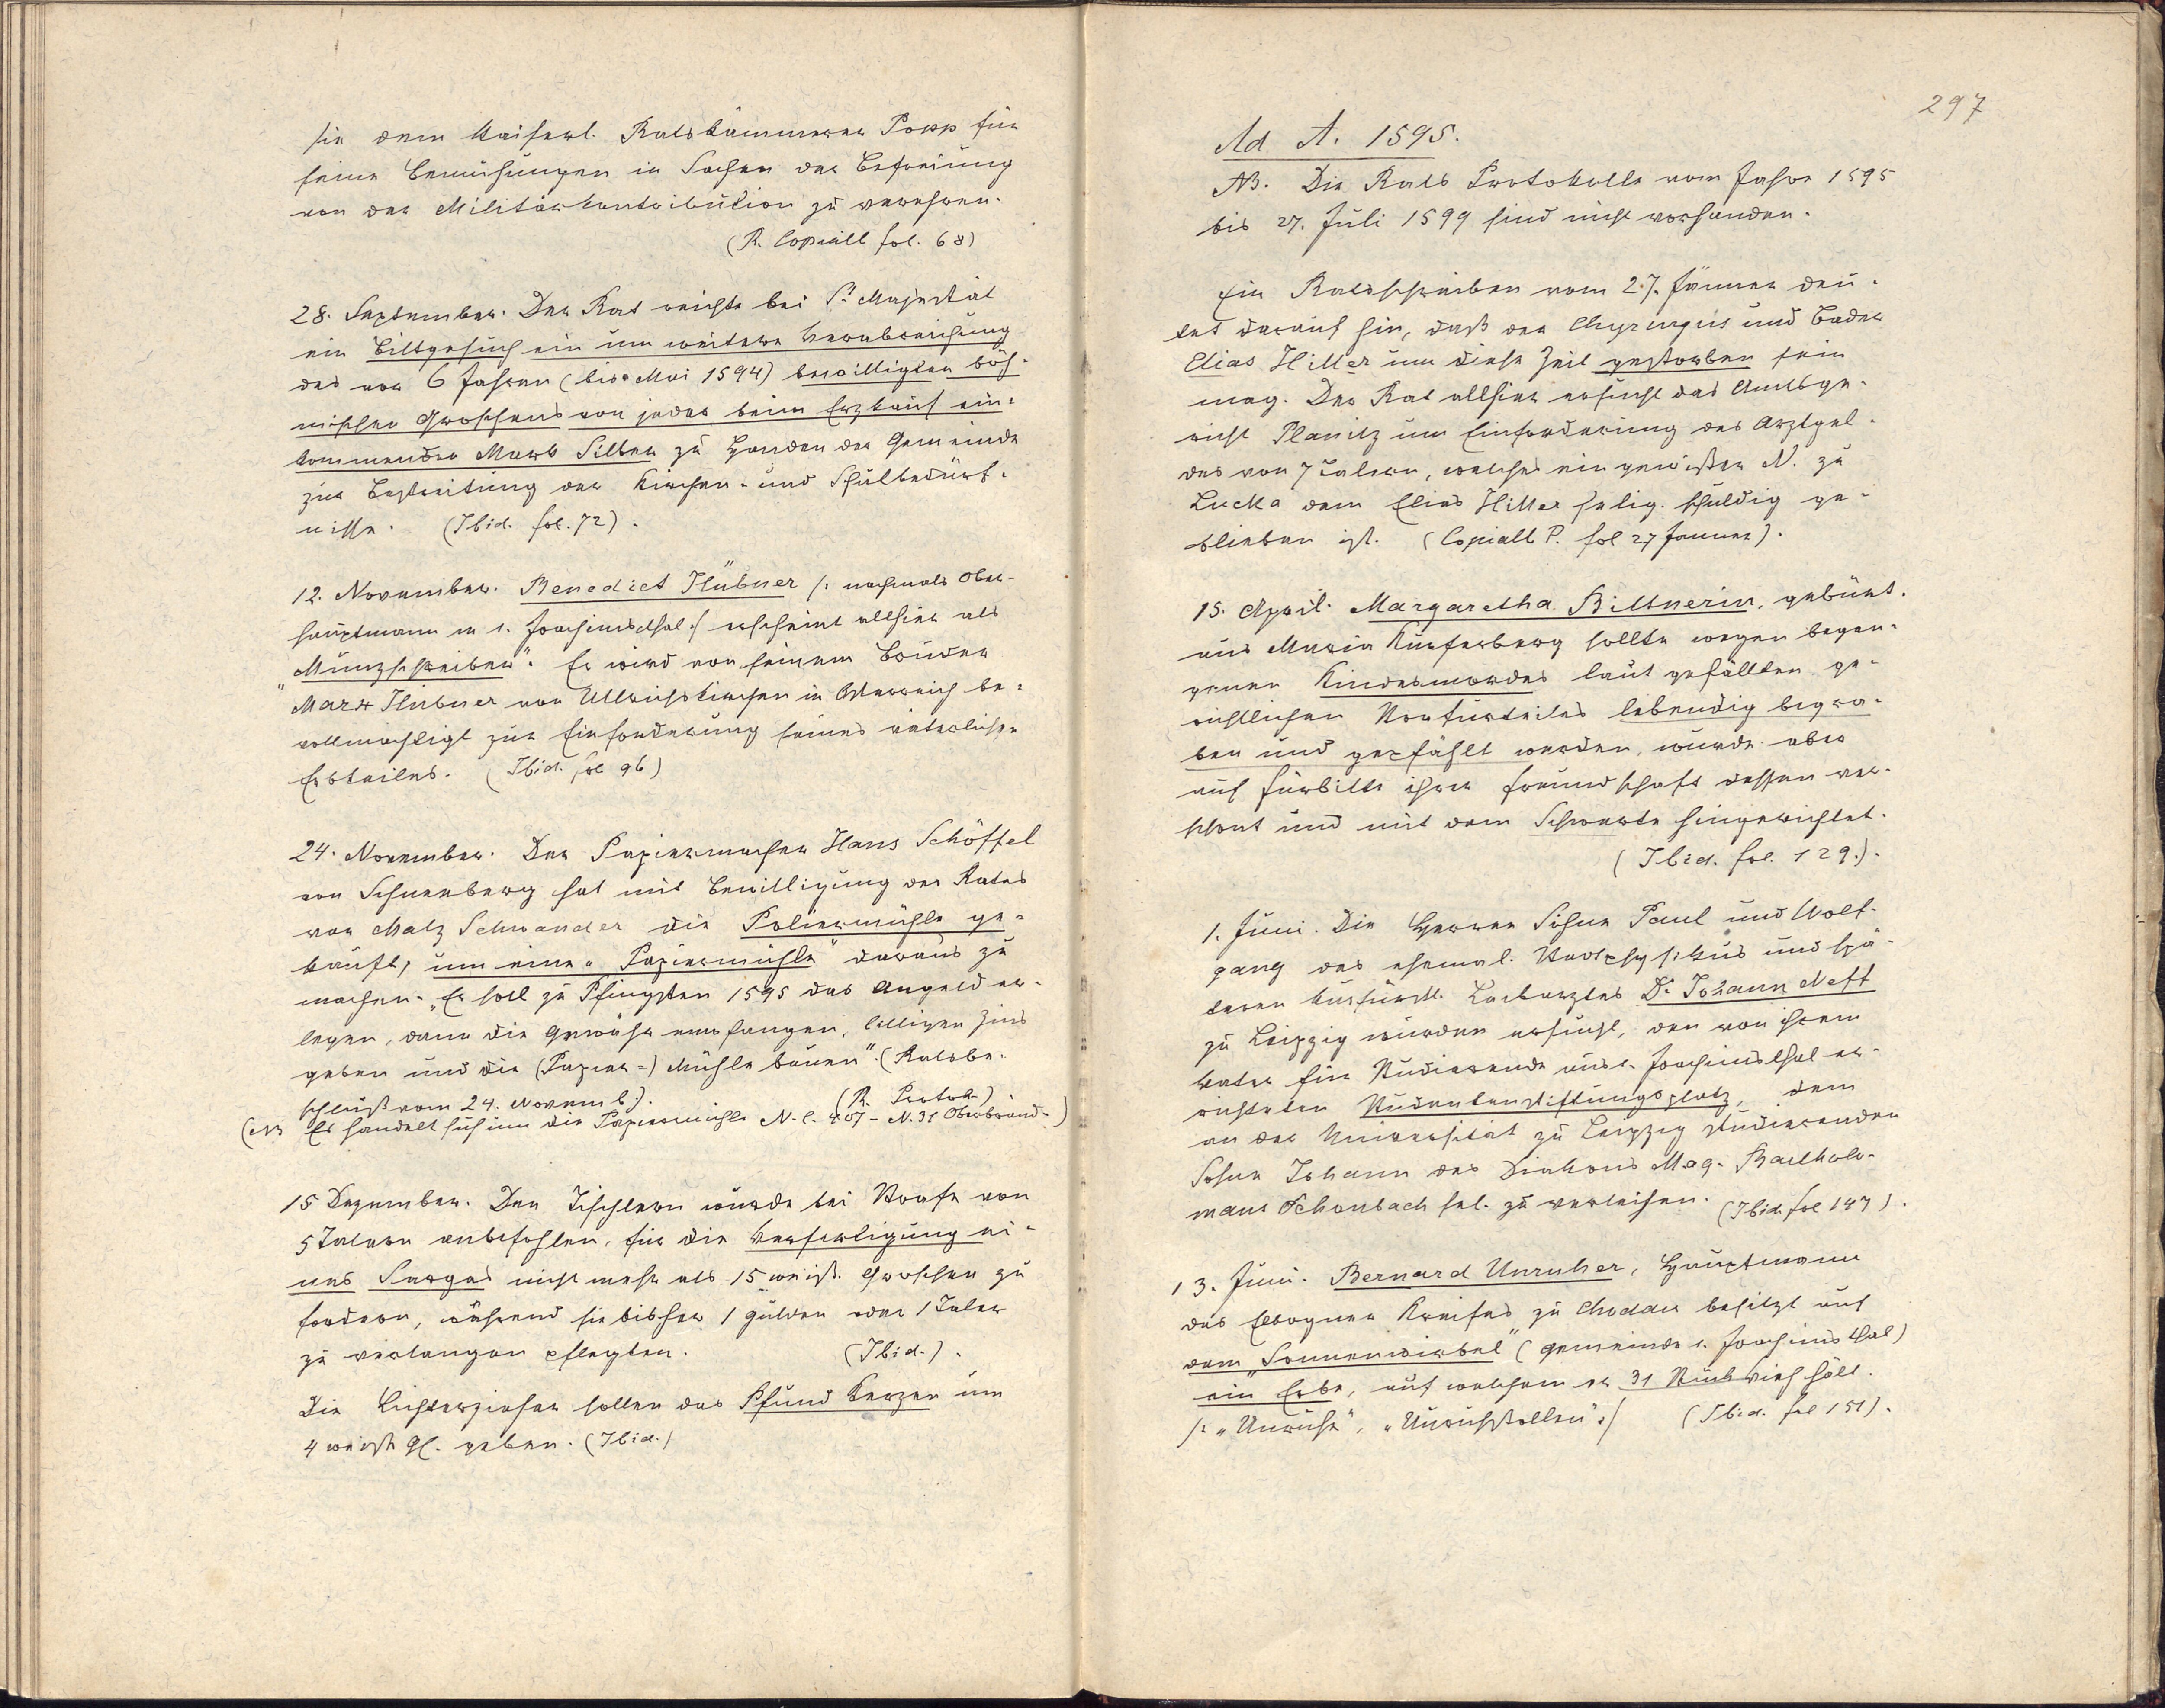 sie dem Kaiserl. Ratskämmerer Popp für
seine Bemühungen in Sachen der Befreiung
von der Militärkontribution zu verehren.
(R. Copiall fol. 68)
28. September. Der Rat reichte bei Sr. Majestät
ein Bittgesuch ein um weitere Verabreichung
des vor 6 Jahren (bis Mai 1594) bewilligten böh-
mischen Groschens von jeder beim Erzkauf ein-
kommenden Mark Silber zu Handen der Gemeinde
zur Bestreitung der Kirchen- und Schulbedürf-
nisse. (Ibid. fol. 72).
12. November. Benedict Hübner /: nochmals Ober-
hauptmann in s. Joachimsthal :/ erscheint allhier als
"Münzschreiber". Er wird von seinem Bruder
Marx Hübner von Ullrichskirchen in Österreich be-
vollmächtigt zur Einforderung seines väterlichen
Erbteiles. (Ibid. fol 96)
24. November. Der Papiermacher Hans Schöffel
von Schneeberg hat mit Bewilligung des Rates
von Matz Schwander die Poliermühle ge-
kauft, um eine "Papiermühle" daraus zu
machen. "Er soll zu Pfingsten 1595 das Angeld er-
legen, dann die Gewähr empfangen, billigen Zins
geben und die (Papier-) Mühle bauen". (Ratsbe-
schluß vom 24. Novemb.). (R. Protok.)
(NB Es handelt sich um die Papiermühle N. C. 407 - N. 31 Oberbrand.)
15 Dezember. Den Tischlern wurde bei Strafe von
5 Talern anbefohlen, für die Verfertigung ei-
nes Sarges nicht mehr als 15 weiß. Groschen zu
fordern, während sie bisher 1 Gulden oder 1 Taler
zu verlangen pflegten. (Ibid.).
Die Lichterzieher sollen das Pfund Kerzen um
4 weiße Gl. geben. (Ibid.)
297
Ad A. 1595.
NB. Die Rats Protokolle vom Jahre 1595
bis 27. Juli 1599 sind nicht vorhanden.
Ein Ratsschreiben vom 27. Jänner deu-
tet darauf hin, daß der Chyrurgus und Bader
Elias Hiller um diese Zeit gestorben sein
mag. Der Rat allhier ersucht das Amtsge-
richt Planitz um Einforderung des Arztgel-
des von 7 Talern, welches ein gewisser N. zu
Lucka dem Elias Hiller selig. schuldig ge-
blieben ist. (Copiall P. fol 27 Jänner).
15. April. Margaretha Bittnerin, gebürt.
aus Maria Kupferberg sollte wegen began-
genen Kindesmordes laut gefällten ge-
richtlichen Strafurteiles lebendig begra-
ben und gepfählt werden, wurde aber
auf Fürbitte ihrer Freundschaft dessen ver-
schont und mit dem Schwerte hingerichtet.
(Ibid. fol. 129.).
1. Juni. Die Herren Söhne Paul und Wolf-
gang des ehemal. Stadtphysikus und spä-
teren kurfürstl. Leibarztes Dr. Johann Neff
zu Leipzig wurden ersucht, den von ihrem
Vater für Studierende aus s. Joachimsthal er-
richteten Studentenstiftungsplatz, dem
an der Universität zu Leipzig studierenden
Sohne Johann des Diakons Mag. Bartholo-
maus Schonbach sel. zu verleihen. (Ibid. fol 147).
13. Juni. Bernard Unruher, Hauptmann
des Elbogner Kreises zu Chodau besitzt auf
dem "Sonnenwirbel" (Gemeinde s. Joachimsthal)
ein Erbe, auf welchem er 31 Stück Vieh hält.
/: "Unruhe", "Unruhstollen" :/ (Ibid. fol 151).